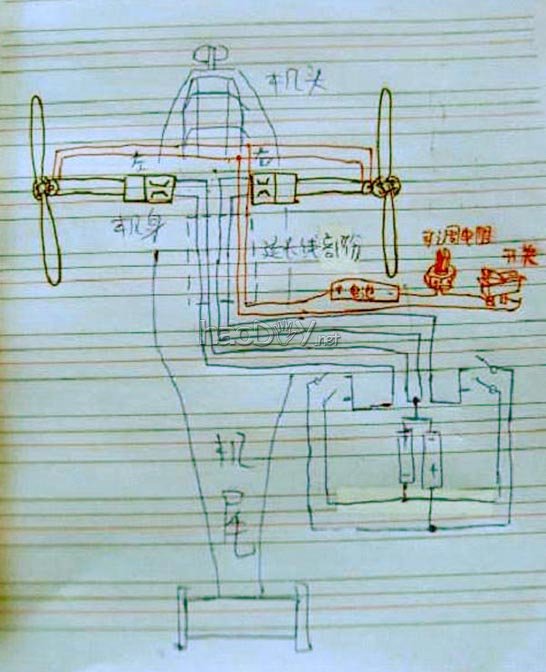 机头
左 右
机身
延长线部份
可调电阻
开关
+ 电池 -
haoDIY.net
+ -
- +
机
尾